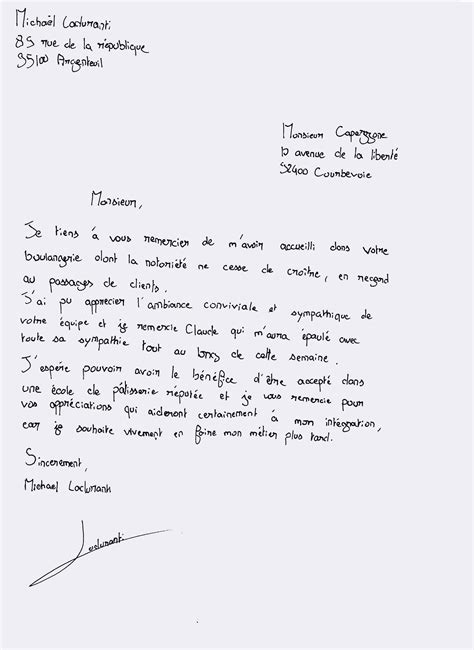 Michaël Lacturranti
85 rue de la république
95100 Argenteuil
Monsieur Capergzone
12 avenue de la liberté
92400 Courbevoie
Monsieur,
Je tiens à vous remercier de m'avoir accueilli dans votre
boulangerie dont la notoriété ne cesse de croître, en regard
au passages de clients.
J'ai pu apprecier l'ambiance conviviale et sympathique de
votre équipe et je remercie Claude qui m'aura épaulé avec
toute sa sympathie tout au long de cette semaine.
J'espère pouvoir avoir le bénéfice d'être accepté dans
une école de pâtisserie réputée et je vous remercie pour
vos appréciations qui aideront certainement à mon intégration,
car je souhaite vivement en faire mon métier plus tard.
Sincerement,
Michaël Lacturranti
Lacturranti